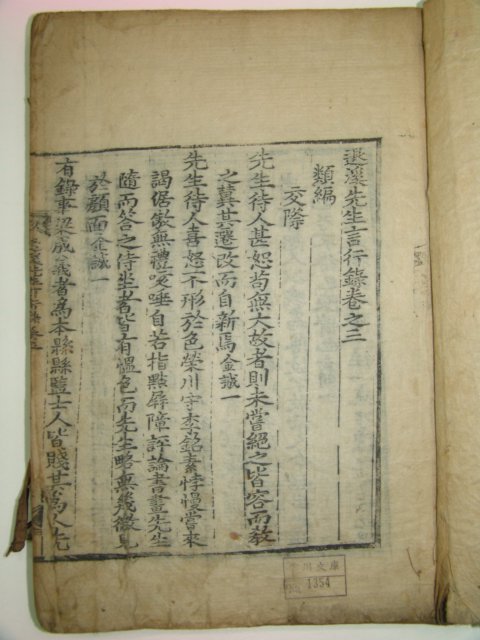 退溪先生言行錄卷之三
類編
交際
先生待人甚恕苟無大故者則未嘗絕之皆容而教
之冀其遷改而自新焉金誠一
先生待人喜怒不形於色榮川宇李銘素悖慢嘗來
謁倨傲無禮咳唾自若指點屛障評論書畫先生
隨而答之侍坐者皆有慍色而先生略無幾微見
於顏面金誠一
有錄事梁成義者為本縣縣監士人皆賤其為人先
川文庫
1354